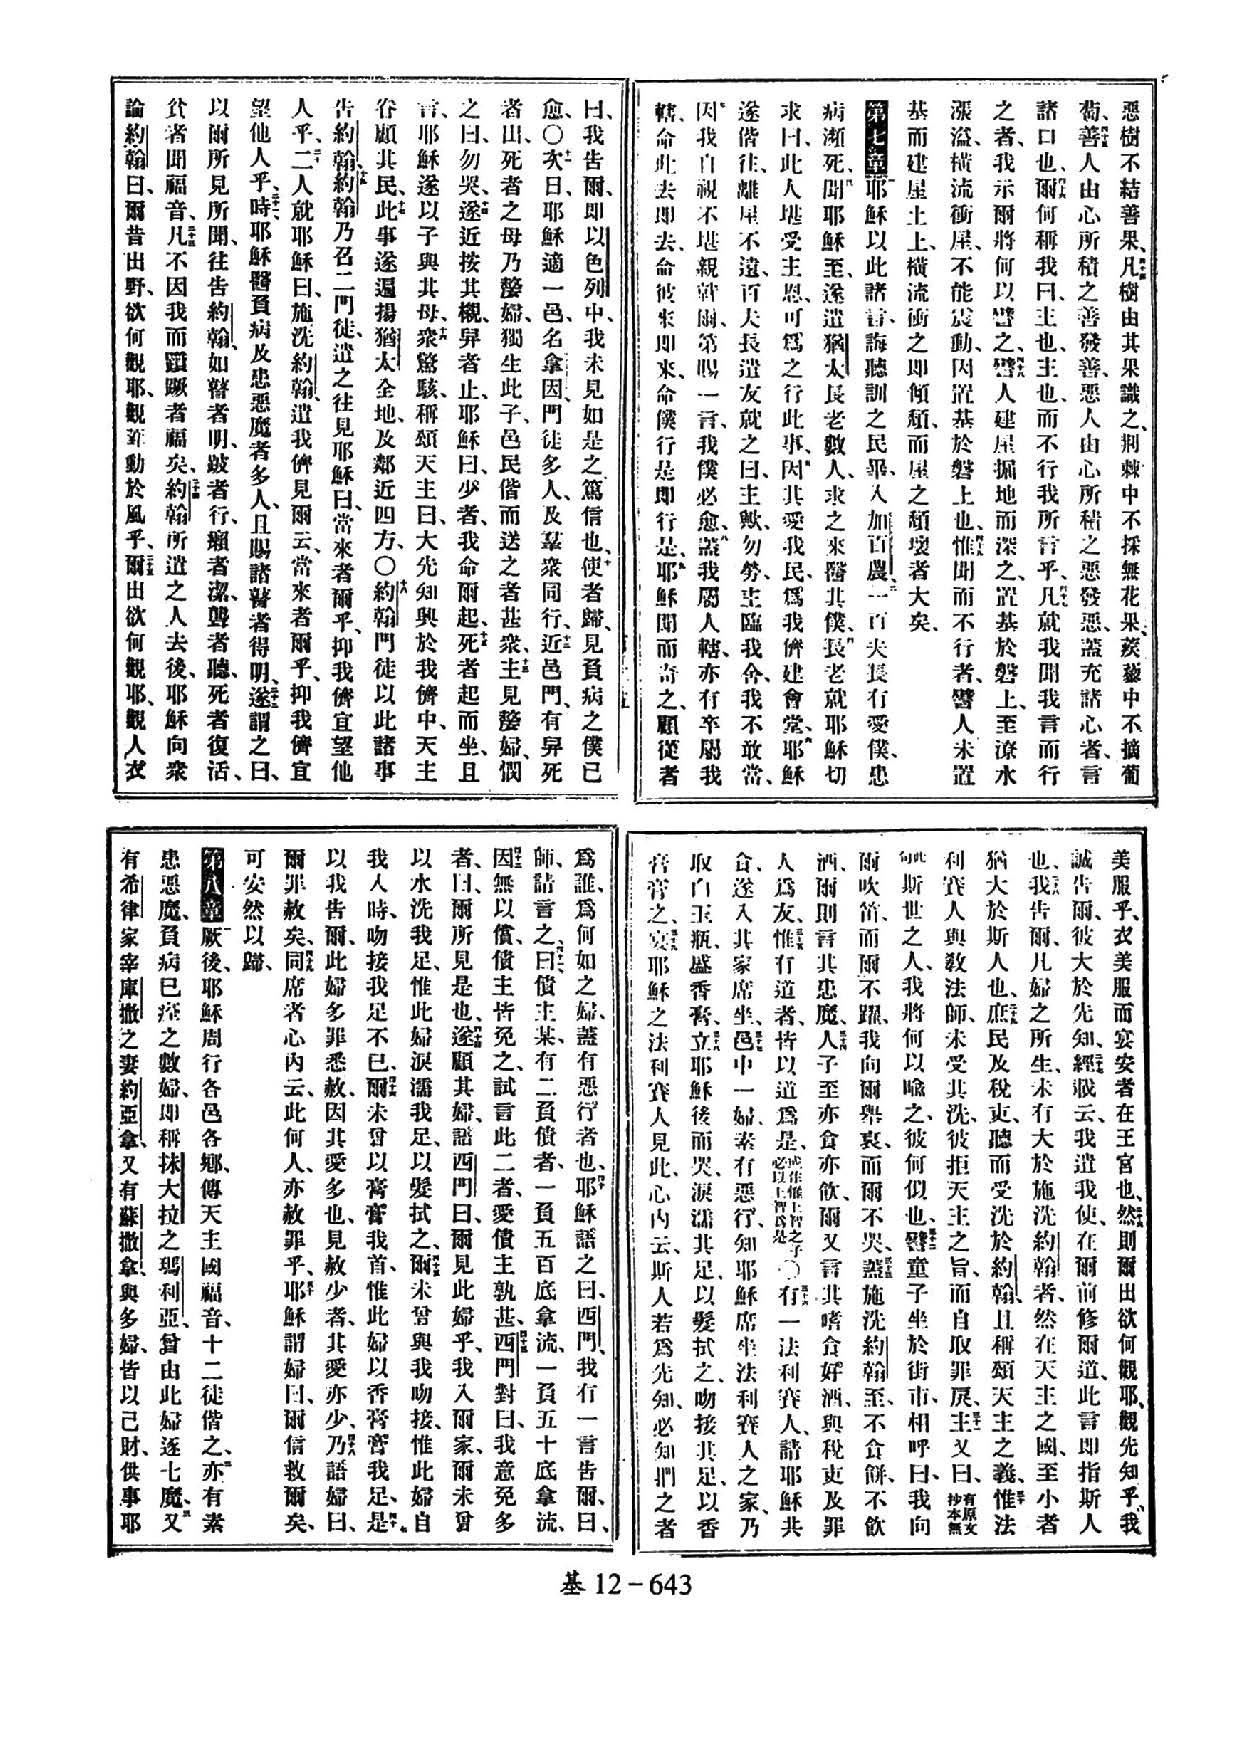 惡樹不結善果、凡樹由其果識之、荆棘中不採無花果、蒺藜中不摘葡
萄、善人由心所積之善發善、惡人由心所積之惡發惡、蓋充諸心者、言
諸口也、爾何稱我曰、主也主也、而不行我所言乎、凡就我聞我言而行
之者、我示爾將何以譬之、譬人建屋掘地而深之、置基於磐上、至潦水
漲溢、橫流衝屋、不能震動、因置基於磐上也、惟聞而不行者、譬人未置
基而建屋土上、橫流衝之即傾頹、而屋之頹壞者大矣、
第七章 耶穌以此諸言誨聽訓之民畢、入加百農、一百夫長有愛僕、患
病瀕死、聞耶穌至、遂遣猶太長老數人、求之來醫其僕、長老就耶穌切
求曰、此人堪受主恩、可爲之行此事、因其愛我民、爲我儕建會堂、耶穌
遂偕往、離屋不遠、百夫長遣友就之曰、主歟、勿勞、主臨我舍、我不敢當、
因我自視不堪親就爾、第賜一言、我僕必愈、蓋我屬人轄、亦有卒屬我
轄、命此去即去、命彼來即來、命僕行是即行是、耶穌聞而奇之、顧從者
曰、我告爾、即以色列中、我未見如是之篤信也、使者歸、見負病之僕已
愈、〇次日、耶穌適一邑、名拿因、門徒多人、及羣衆同行、近邑門、有舁死
者出、死者之母乃嫠婦、獨生此子、邑民偕而送之者甚衆、主見嫠婦、憫
之曰、勿哭、遂近按其櫬、舁者止、耶穌曰、少者、我命爾起、死者起而坐、且
言、耶穌遂以子與其母、衆驚駭、稱頌天主曰、大先知興於我儕中、天主
眷顧其民、此事遂遍揚猶太全地、及鄰近四方、〇約翰門徒以此諸事
告約翰、約翰乃召二門徒、遣之往見耶穌曰、當來者爾乎、抑我儕宜望他
人乎、二人就耶穌曰、施洗約翰、遣我儕見爾云、當來者爾乎、抑我儕宜
望他人乎、時耶穌醫負病及患惡魔者多人、且賜諸瞽者得明、遂謂之曰、
以爾所見所聞、往告約翰、如瞽者明、跛者行、癩者潔、聾者聽、死者復活、
貧者聞福音、凡不因我而躓蹶者福矣、約翰所遣之人去後、耶穌向衆
論約翰曰、爾昔出野、欲何觀耶、觀葦動於風乎、爾出欲何觀耶、觀人衣
美服乎、衣美服而宴安者在王宮也、然則爾出欲何觀耶、觀先知乎、我
誠告爾、彼大於先知、經載云、我遣我使、在爾前修爾道、此言即指斯人
也、我告爾、凡婦之所生、未有大於施洗約翰者、然在天主之國、至小者
猶大於斯人也、庶民及稅吏、聽而受洗於約翰、且稱頌天主之義、惟法
利賽人與敎法師、未受其洗、彼拒天主之旨、而自取罪戾、主又曰、有原文抄本無
此句斯世之人、我將何以喻之、彼何似也、譬童子坐於街市、相呼曰、我向
爾吹笛、而爾不躍、我向爾舉哀、而爾不哭、蓋施洗約翰至、不食餅、不飲
酒、爾則言其患魔、人子至亦食亦飲、爾又言其嗜食好酒、與稅吏及罪
人爲友、惟有道者、皆以道爲是、或作惟上智之子必以上智爲是〇有一法利賽人、請耶穌共
食、遂入其家席坐、邑中一婦素有惡行、知耶穌席坐法利賽人之家、乃
取白玉瓶、盛香膏、立耶穌後而哭、淚濡其足、以髮拭之、吻接其足、以香
膏膏之、宴耶穌之法利賽人見此、心內云、斯人若爲先知、必知捫之者
爲誰、爲何如之婦、蓋有惡行者也、耶穌語之曰、西門、我有一言告爾、曰、
師、請言之、曰債主某、有二負債者、一負五百底拿流、一負五十底拿流、
因無以償、債主皆免之、試言此二者、愛債主孰甚、西門對曰、我意免多
者、曰、爾所見是也、遂顧其婦、語西門曰、爾見此婦乎、我入爾家、爾未曾
以水洗我足、惟此婦淚濡我足、以髮拭之、爾未曾與我吻接、惟此婦自
我入時、吻接我足不已、爾未曾以膏膏我首、惟此婦以香膏膏我足、是
以我告爾、此婦多罪悉赦、因其愛多也、見赦少者、其愛亦少、乃語婦曰、
爾罪赦矣、同席者心內云、此何人、亦赦罪乎、耶穌謂婦曰、爾信救爾矣、
可安然以歸、
第八章 厥後、耶穌周行各邑各鄉、傳天主國福音、十二徒偕之、亦有素
患惡魔、負病已痊之數婦、即稱抹大拉之瑪利亞、曾由此婦逐七魔、又
有希律家宰庫撒之妻約亞拿、又有蘇撒拿、與多婦、皆以己財、供事耶
基12－643